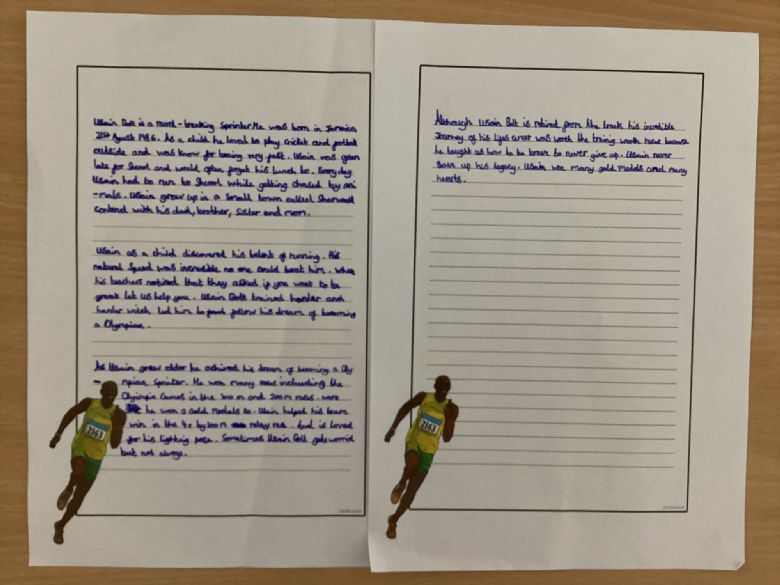 Usain Bolt is a recrd-breaking Sprinter. He was born in Jamaica
21st August 1986. As a child he loved to play cricket and football
outside and was know for being very fast. Usain was often
late for School and would often forget his lunch bo. Every day
Usain had to run to School while getting chased by ani
-mals. Usain grew up in a Small town called Sherwood
content with his dad, brother, Sister and mom.
Usain as a child discovered his talent of running. His
natural Speed was incredible no one could beat him. When
his teachers noticed that they asked if you want to be
great let us help you. Usain Bolt trained harder and
harder witch led him to follow his dream of becoming
a Olympian.
As Usain grew older he achived his dream of becoming a Oly
- mpian Sprinter. He won many races including the
Olympic Games in the 100 m and 200m races. were
he won 8 Gold Medals so. Usain helped his team
win in the 4x by 100m relay race. And is loved
for his lighting pose. Sometimes Usain Bolt gets worrid
but not always.
2163
Although Usain Bolt is retired from the track his incredible
Journey of his lifes career was worth the traning worth because
he taught us how to be brave to never give up. Usain never
gave up his legacy. Usain won many gold Medals and many
hearts.
2163